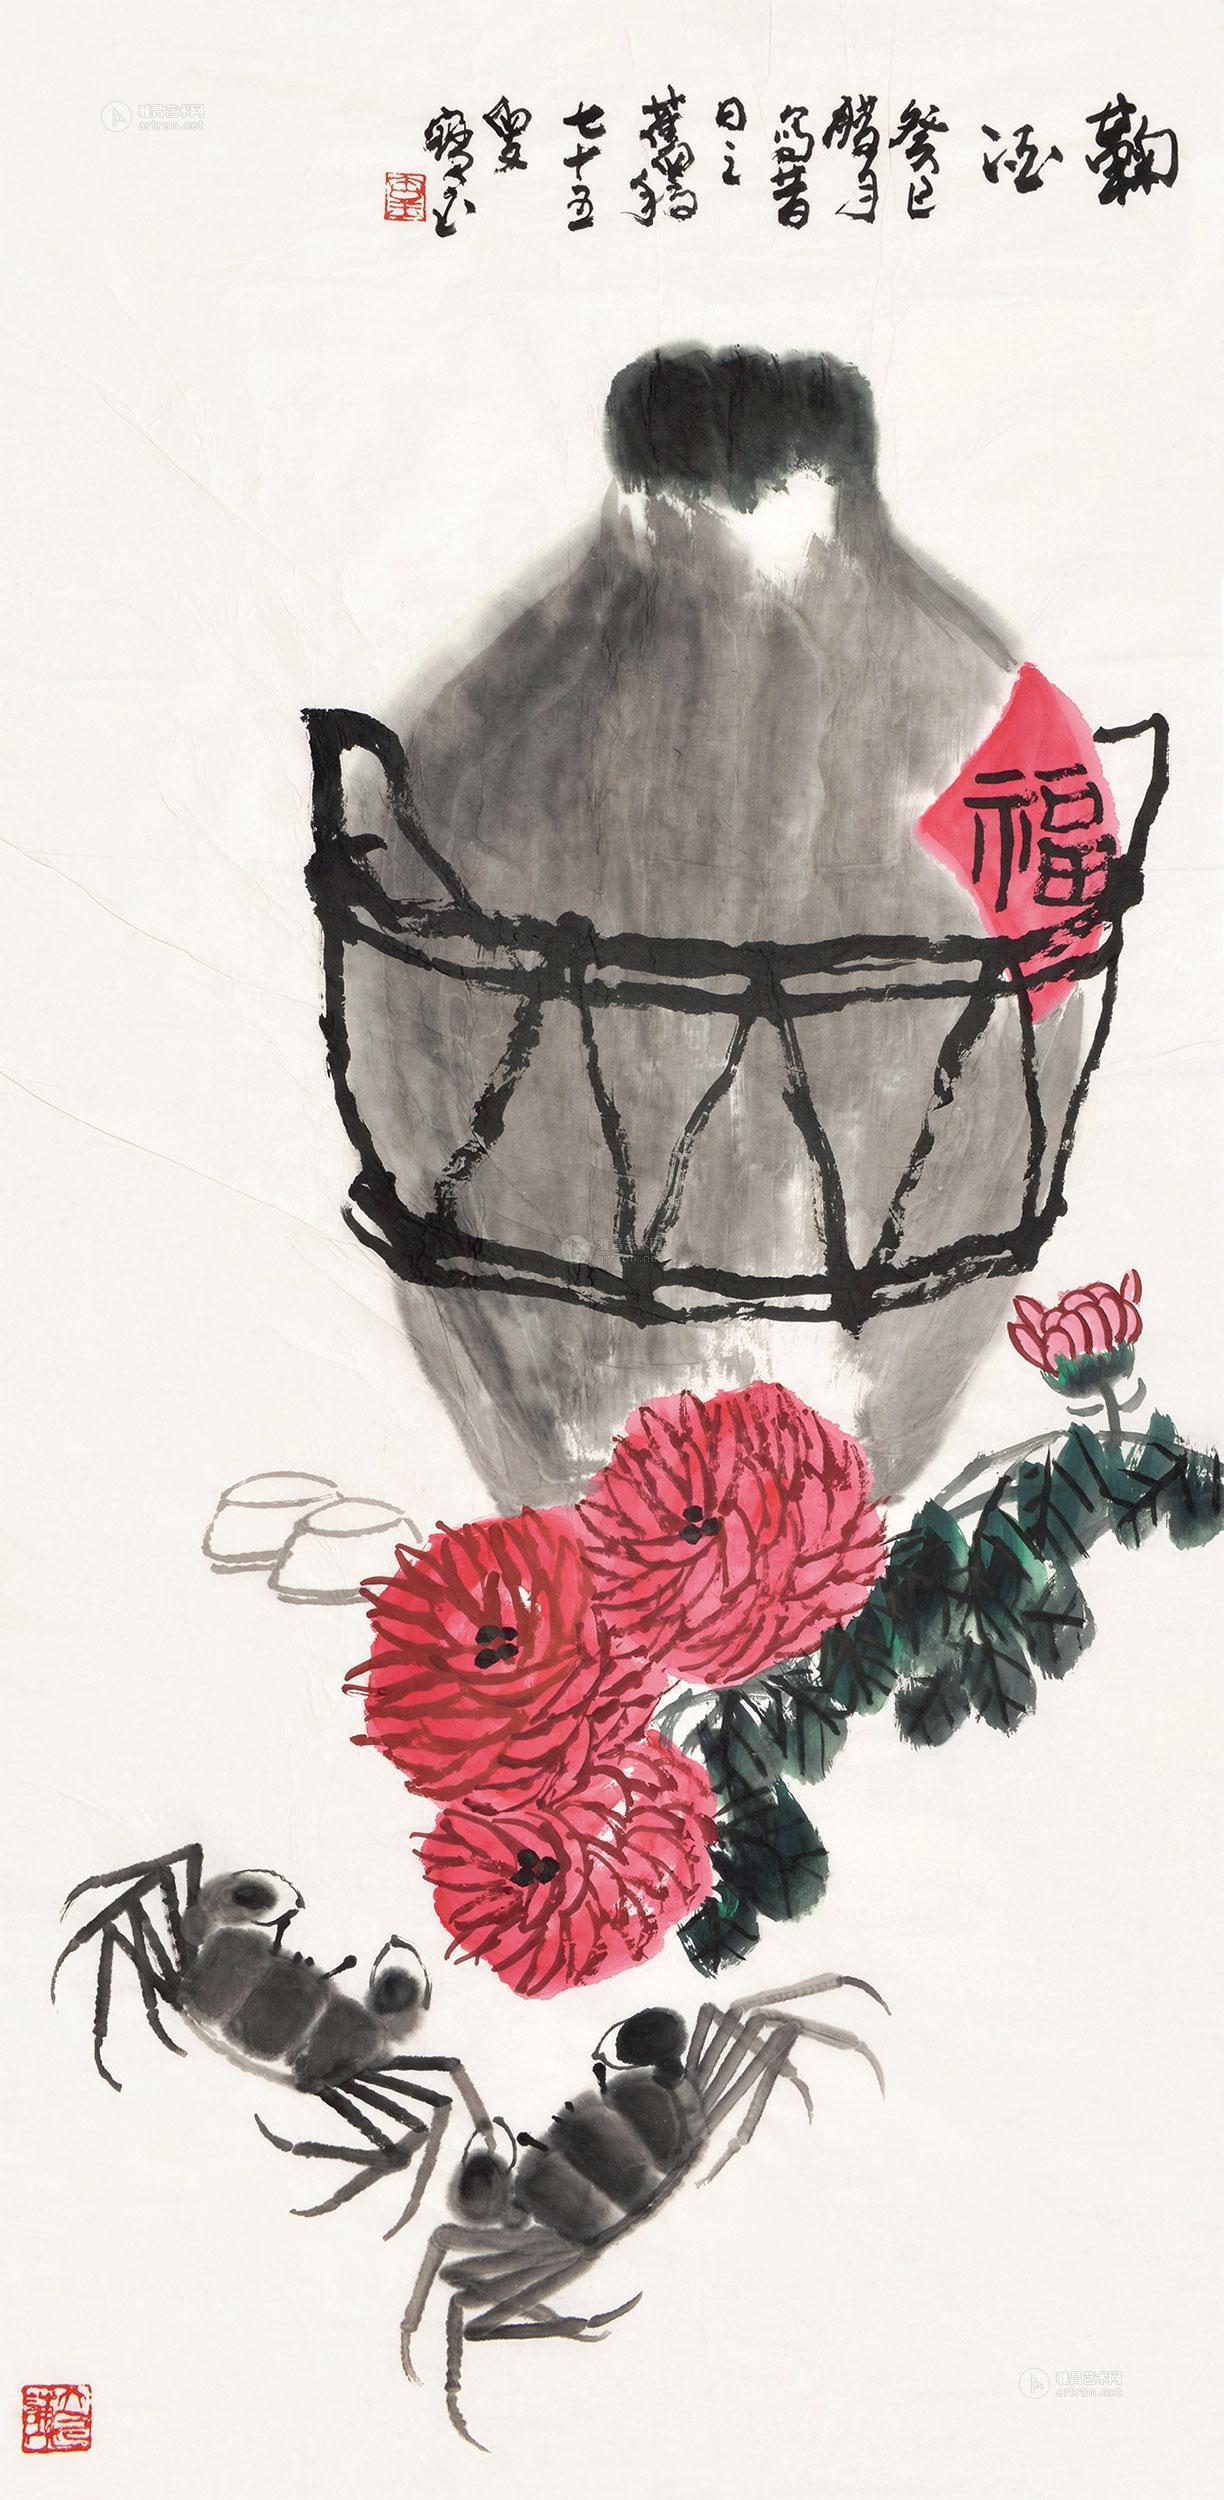 鞠
酒
癸巳
腊月
写昔
日之
旧稿
七十五
叟
宝玉
福
雅昌艺术网
artron.net
雅昌艺术网
artron.net
雅昌艺术网
artron.net